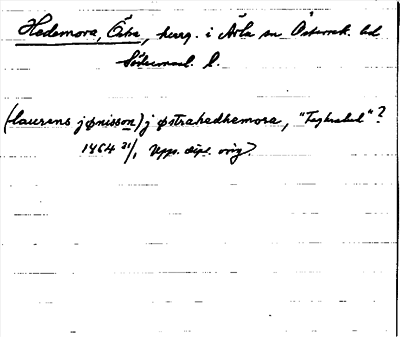 Hedemora, Östra, herrg. i Ärla sn Österrek. hd
Södermanl. l.
(laurens jønisson) j østrahedhemora, "Teghrabol"?
1464 21/1 Upps. dipl. orig.